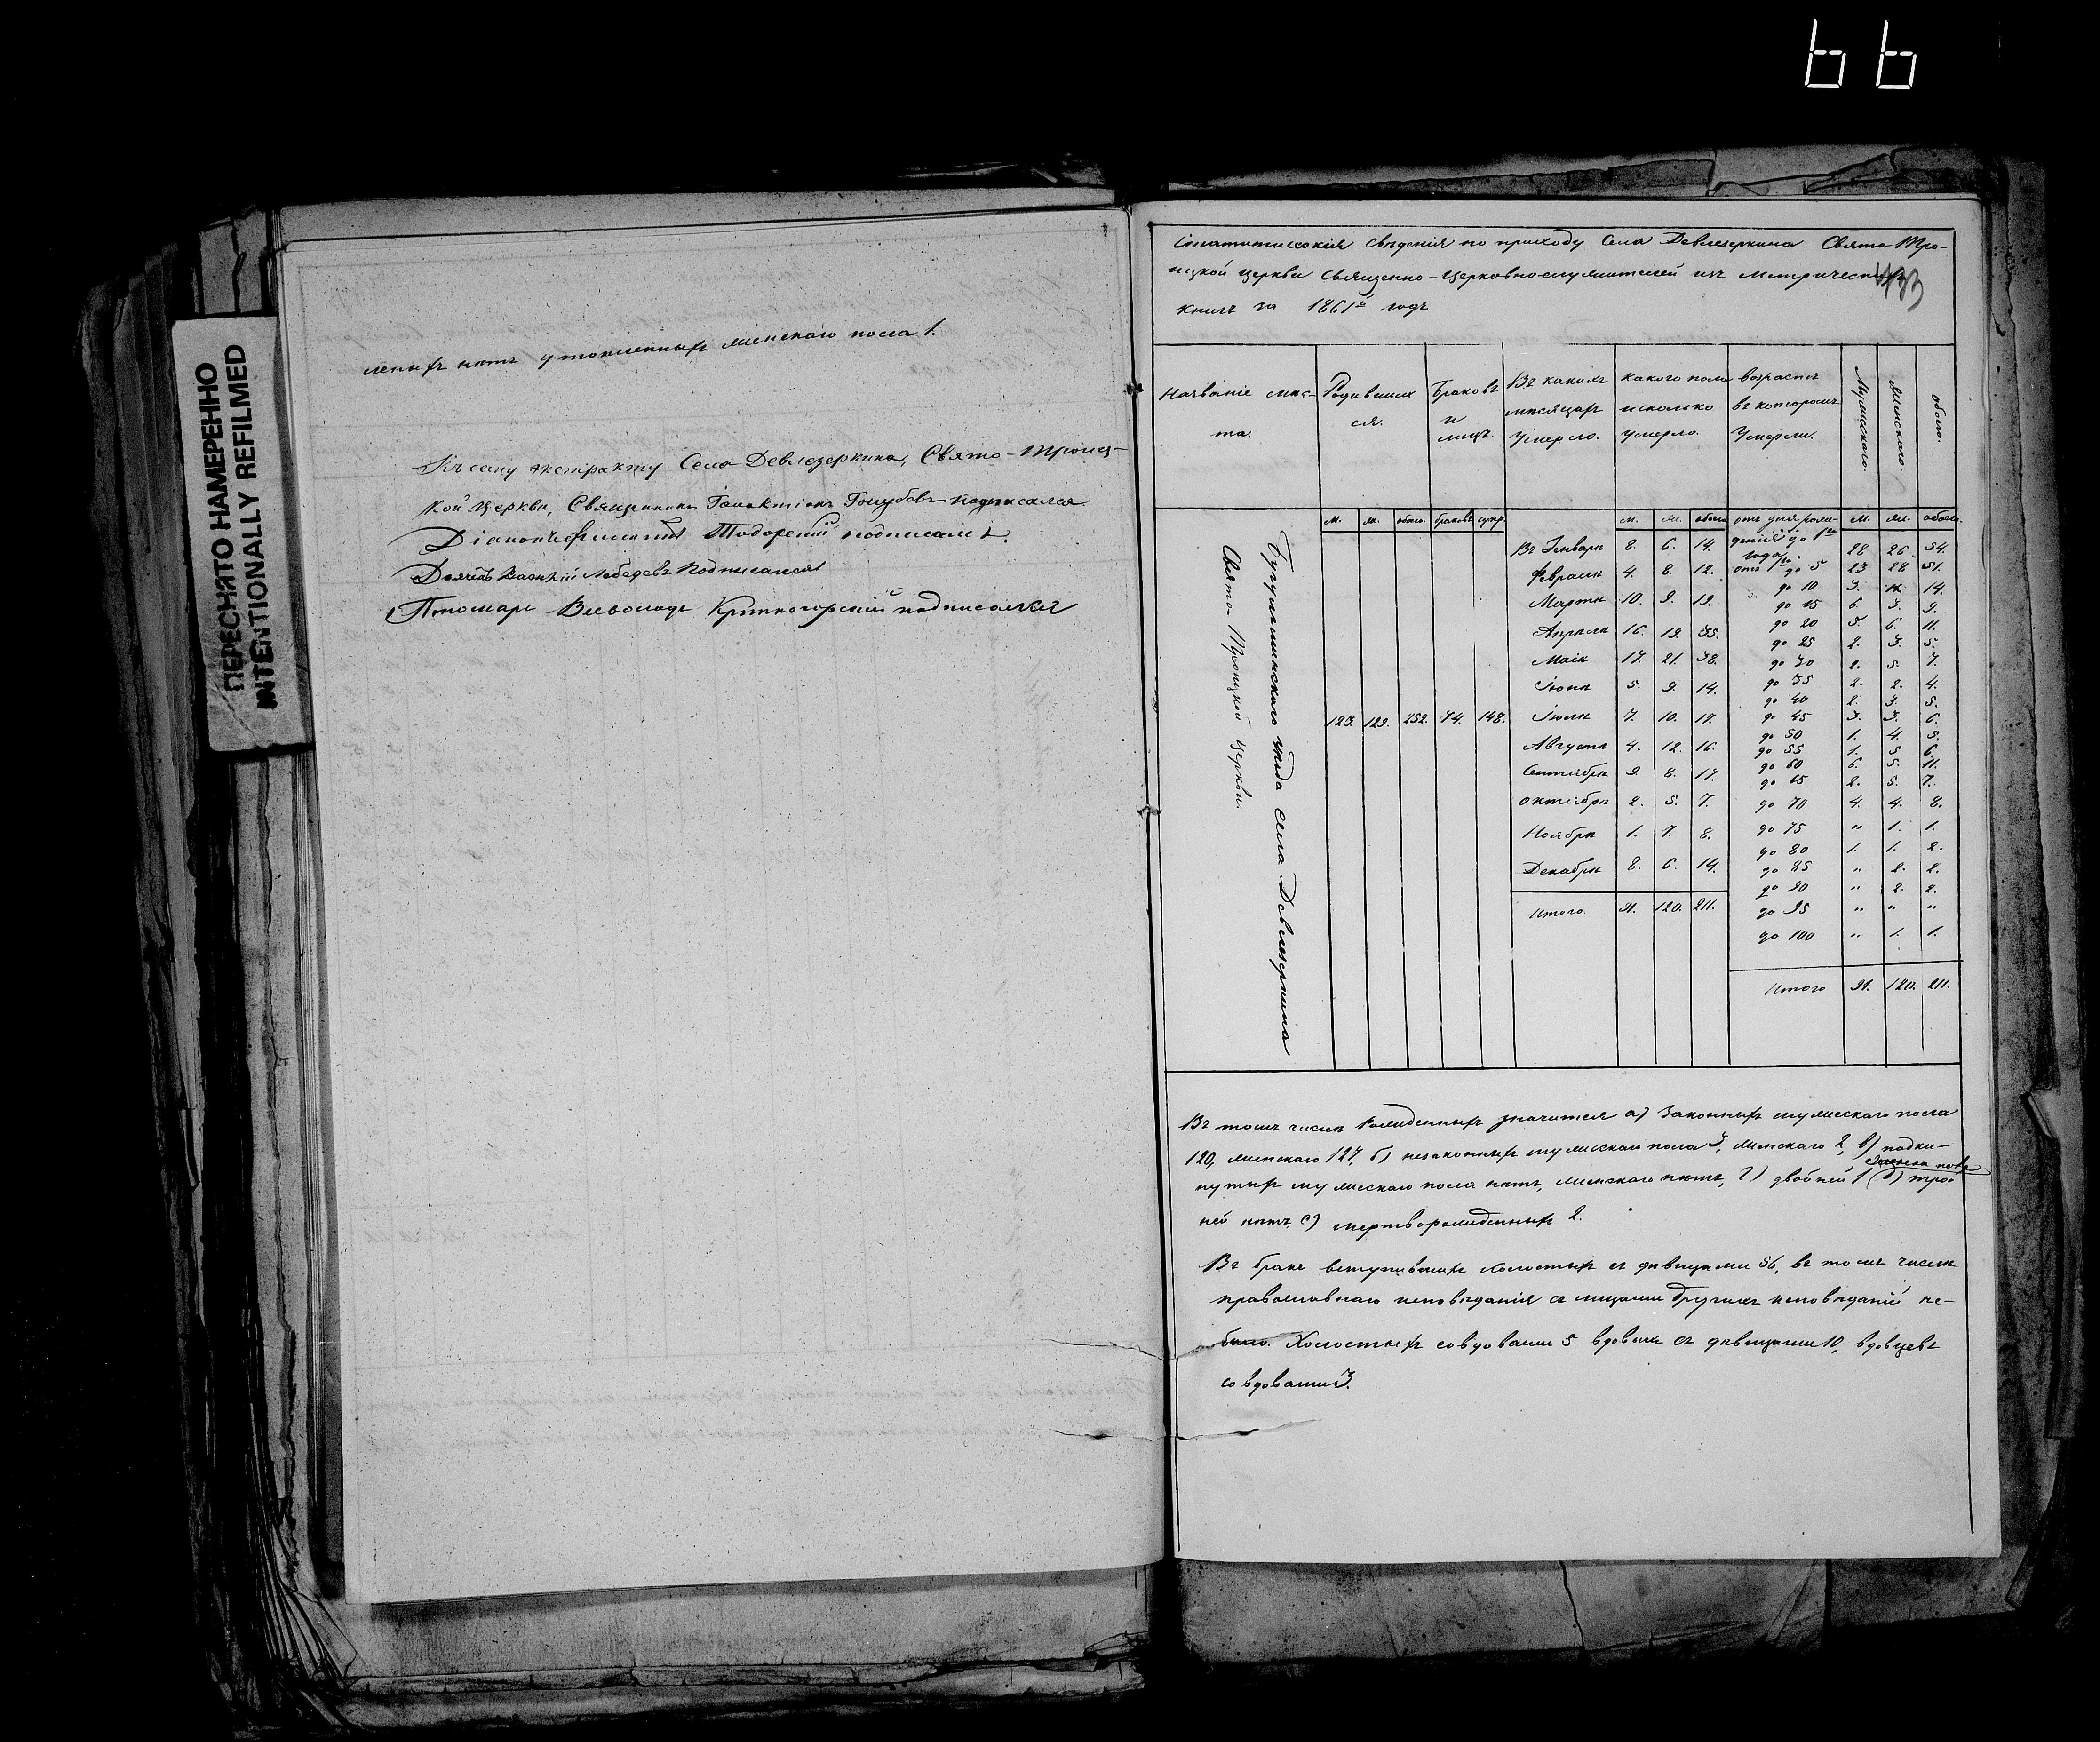 66
ПЕРЕСНЯТО НАМЕРЕННО
INTENTIONALLY REFILMED
ленныхъ нѣтъ утопленныхъ женскаго пола 1.
Къ сему экстракту Села Девлезеркина, Свято-Троиц-
кой Церкви, Священникъ Галактіонъ Голубевъ подписался
Діаконъ Тодорскій подписался.
Дьячекъ Василій Лебедевъ Подписался
Пономарь Всеволодъ Крѣпкогорскій подписался
Статистическія свѣденія по приходу Села Девлезеркина Свято Тро-
ицкой церкви Священно-церковно-служителей изъ Метрическихъ
433
книгъ за 1861й годъ
Названіе мѣс-
та.
Родивших
ся.
Браковъ
и
лицъ.
Въ какихъ
мѣсяцахъ
Умерло.
какого пола
и сколько
Умерло.
возрастъ
въ которомъ
Умерли.
Мужескаго.
Женскаго.
обоего.
м. ж. обоего. браковъ супр. м. ж. обоего отъ дня рож- м. ж. обоего.
Бугульминскаго уѣзда села Девлезеркина
Свято-Троицкой церкви.
123. 129. 252. 74. 148.
Въ Генварѣ 8. 6. 14.
Февралѣ 4. 8. 12.
Мартѣ 10. 9. 19.
Апрѣлѣ 16. 19. 35.
Маіѣ 17. 21. 38.
Іюнѣ 5. 9. 14.
Іюлѣ 7. 10. 17.
Августѣ 4. 12. 16.
Сентябрѣ 9. 8. 17.
октябрѣ 2. 5. 7.
Ноябрѣ 1. 7. 8.
Декабрѣ 8. 6. 14.
Итого 91. 120. 211.
денія до 1го
года 28 26. 54.
отъ 1го до 5 23 28 51.
до 10 3. 11. 14.
до 15 6. 3. 9.
до 20 5. 6. 11.
до 25 2. 3. 5.
до 30 2. 5. 7.
до 35 2. 2. 4.
до 40 2. 3. 5.
до 45 3. 3. 6.
до 50 1. 4. 5.
до 55 1. 5. 6.
до 60 6. 5. 11.
до 65 2. 5. 7.
до 70 4. 4. 8.
до 75 „ 1. 1.
до 80 1. 1. 2.
до 85 „ 2. 2.
до 90 „ 2. 2.
до 95 „ „ „
до 100 „ 1. 1.
Итого 91. 120. 211.
Въ томъ числѣ Рожденныхъ значится а) Законныхъ мужескаго пола
120, женскаго 127, б) незаконныхъ мужескаго пола 3, женскаго 2, в) подки-
нутыхъ мужескаго пола нѣтъ, женскаго нѣтъ, г) двойней 1 (женска пола д) трой
ней нѣтъ е) мертворожденныхъ 2.
Въ бракъ вступившихъ холостыхъ съ дѣвицами 56, въ томъ числѣ
православнаго исповѣданія съ лицами другихъ исповѣданій не-
было. Холостыхъ со вдовами 5 вдовыхъ съ дѣвицами 10, вдовцевъ
со вдовами 3.